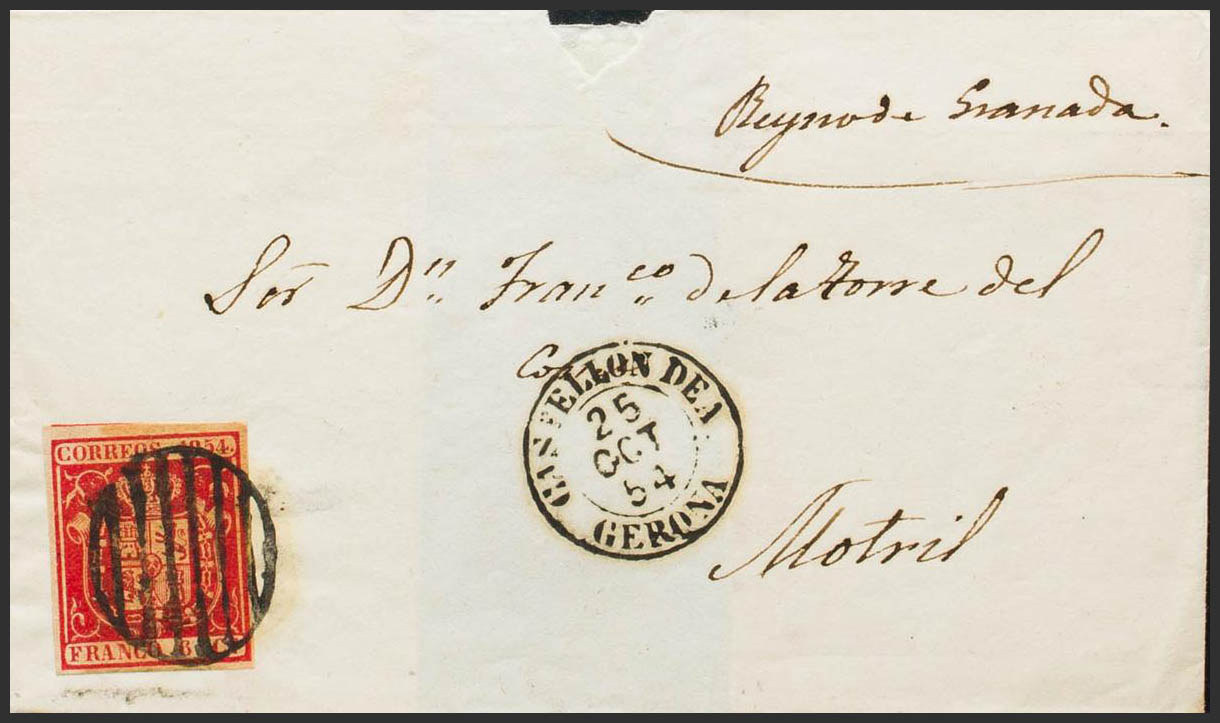 Reyno de Granada.
Sor Dn Franco de la Torre del
CASTELLON DE A
25
OCT
54
GERONA
Motril
CORREOS 1854.
FRANCO 6 Cs